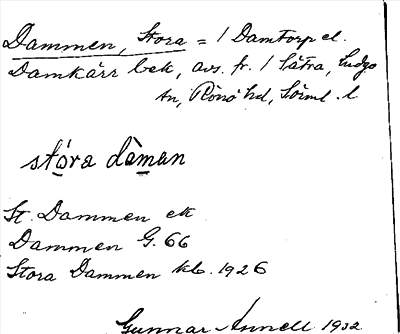 Dammen, Stora = / Damtorp el.
Damkärr bek, avs. fr. / Sätra, Ludgo
sn, Rönö hd, Sörml. l
stóra dàman
St. Dammen ek
Dammen G. 66
Stora Dammen kb. 1926
Gunnar Annell 1932